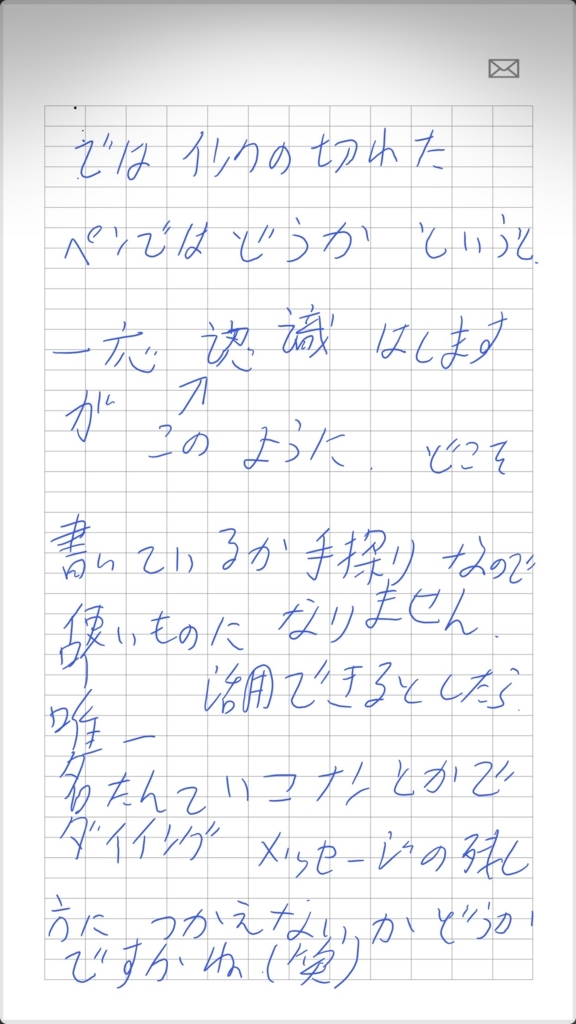 では インクの切れた
ペンではどうか というと
一応 認識 はします
が ↗
このように どこを
書いているか手探りなので
使いものになりません
活用できるとしたら
唯一
名たんていコナンとかで
ダイイング メッセージの残し
方に つかえないかどうか
ですかね(笑)